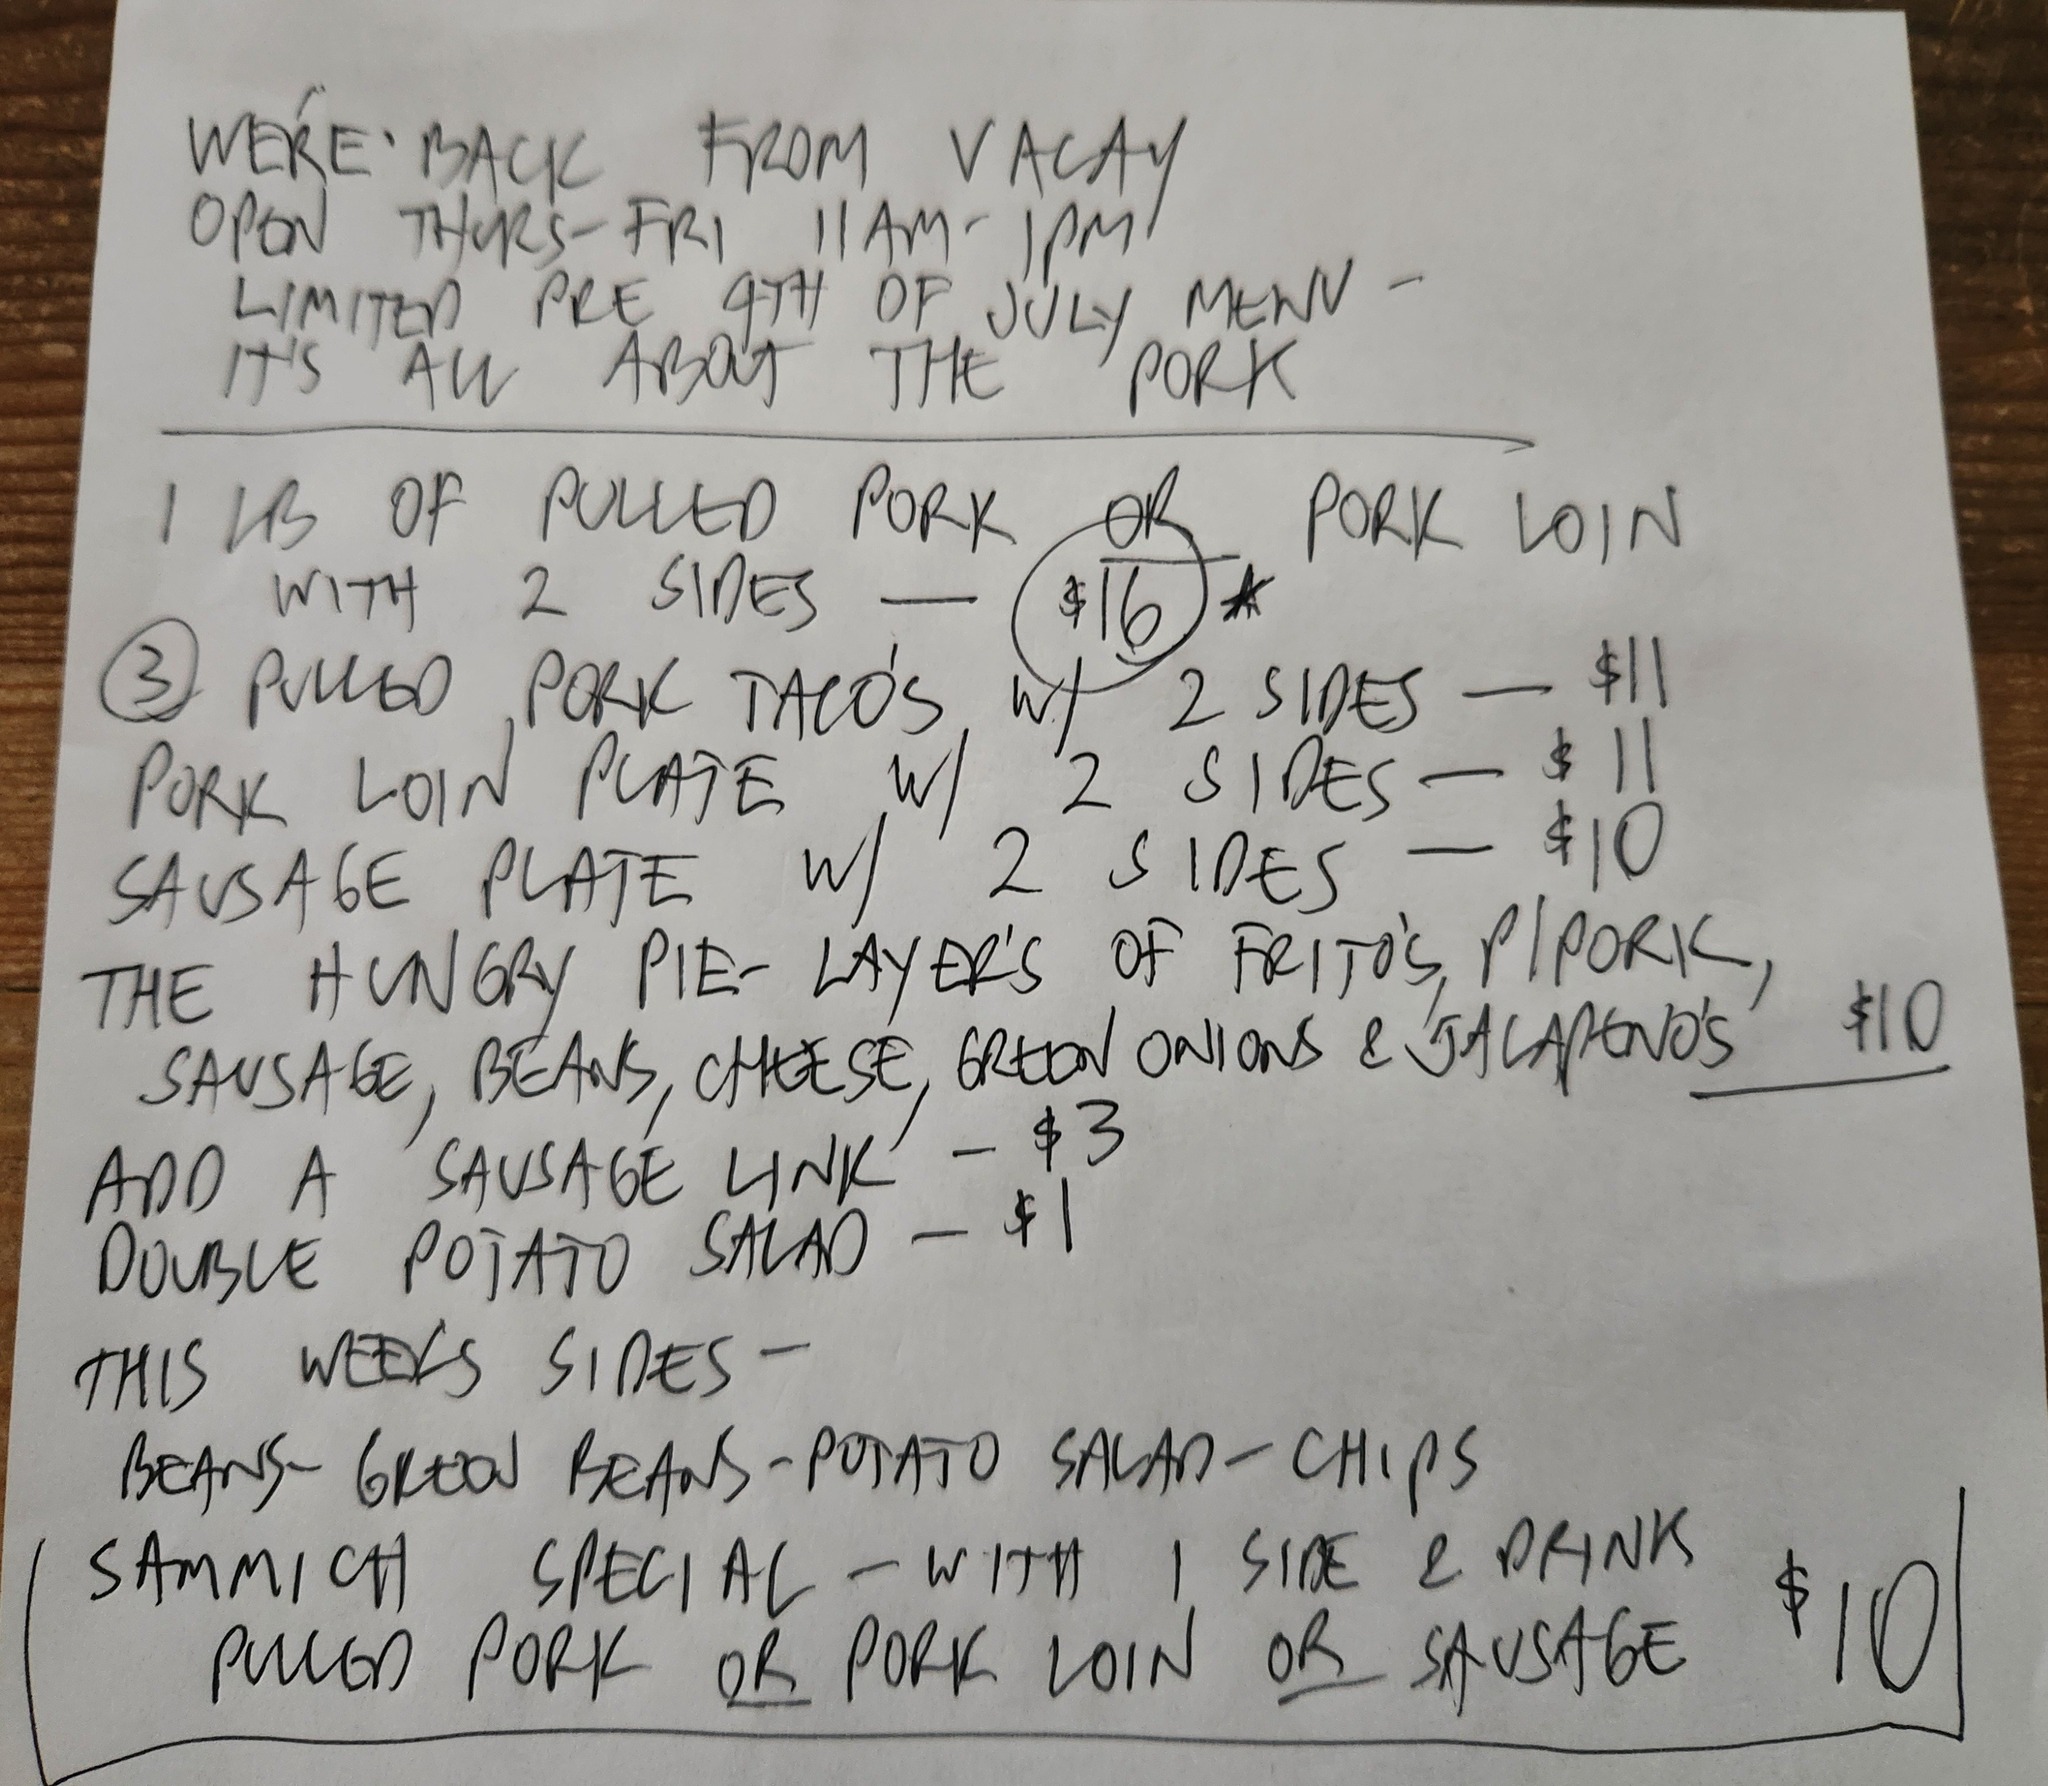 WE'RE BACK FROM VACAY
OPEN THURS-FRI 11AM-1PM
LIMITED PRE 4TH OF JULY MENU -
IT'S ALL ABOUT THE PORK
1 LB OF PULLED PORK OR PORK LOIN
WITH 2 SIDES — $16 ★
③ PULLED PORK TACO'S W/ 2 SIDES — $11
PORK LOIN PLATE W/ 2 SIDES — $11
SAUSAGE PLATE W/ 2 SIDES — $10
THE HUNGRY PIE- LAYER'S OF FRITO'S, P/PORK,
SAUSAGE, BEANS, CHEESE, GREEN ONIONS & JALAPENO'S $10
ADD A SAUSAGE LINK - $3
DOUBLE POTATO SALAD - $1
THIS WEEK'S SIDES -
BEANS- GREEN BEANS - POTATO SALAD - CHIPS
SAMMICH SPECIAL - WITH 1 SIDE & DRINK
PULLED PORK OR PORK LOIN OR SAUSAGE $10